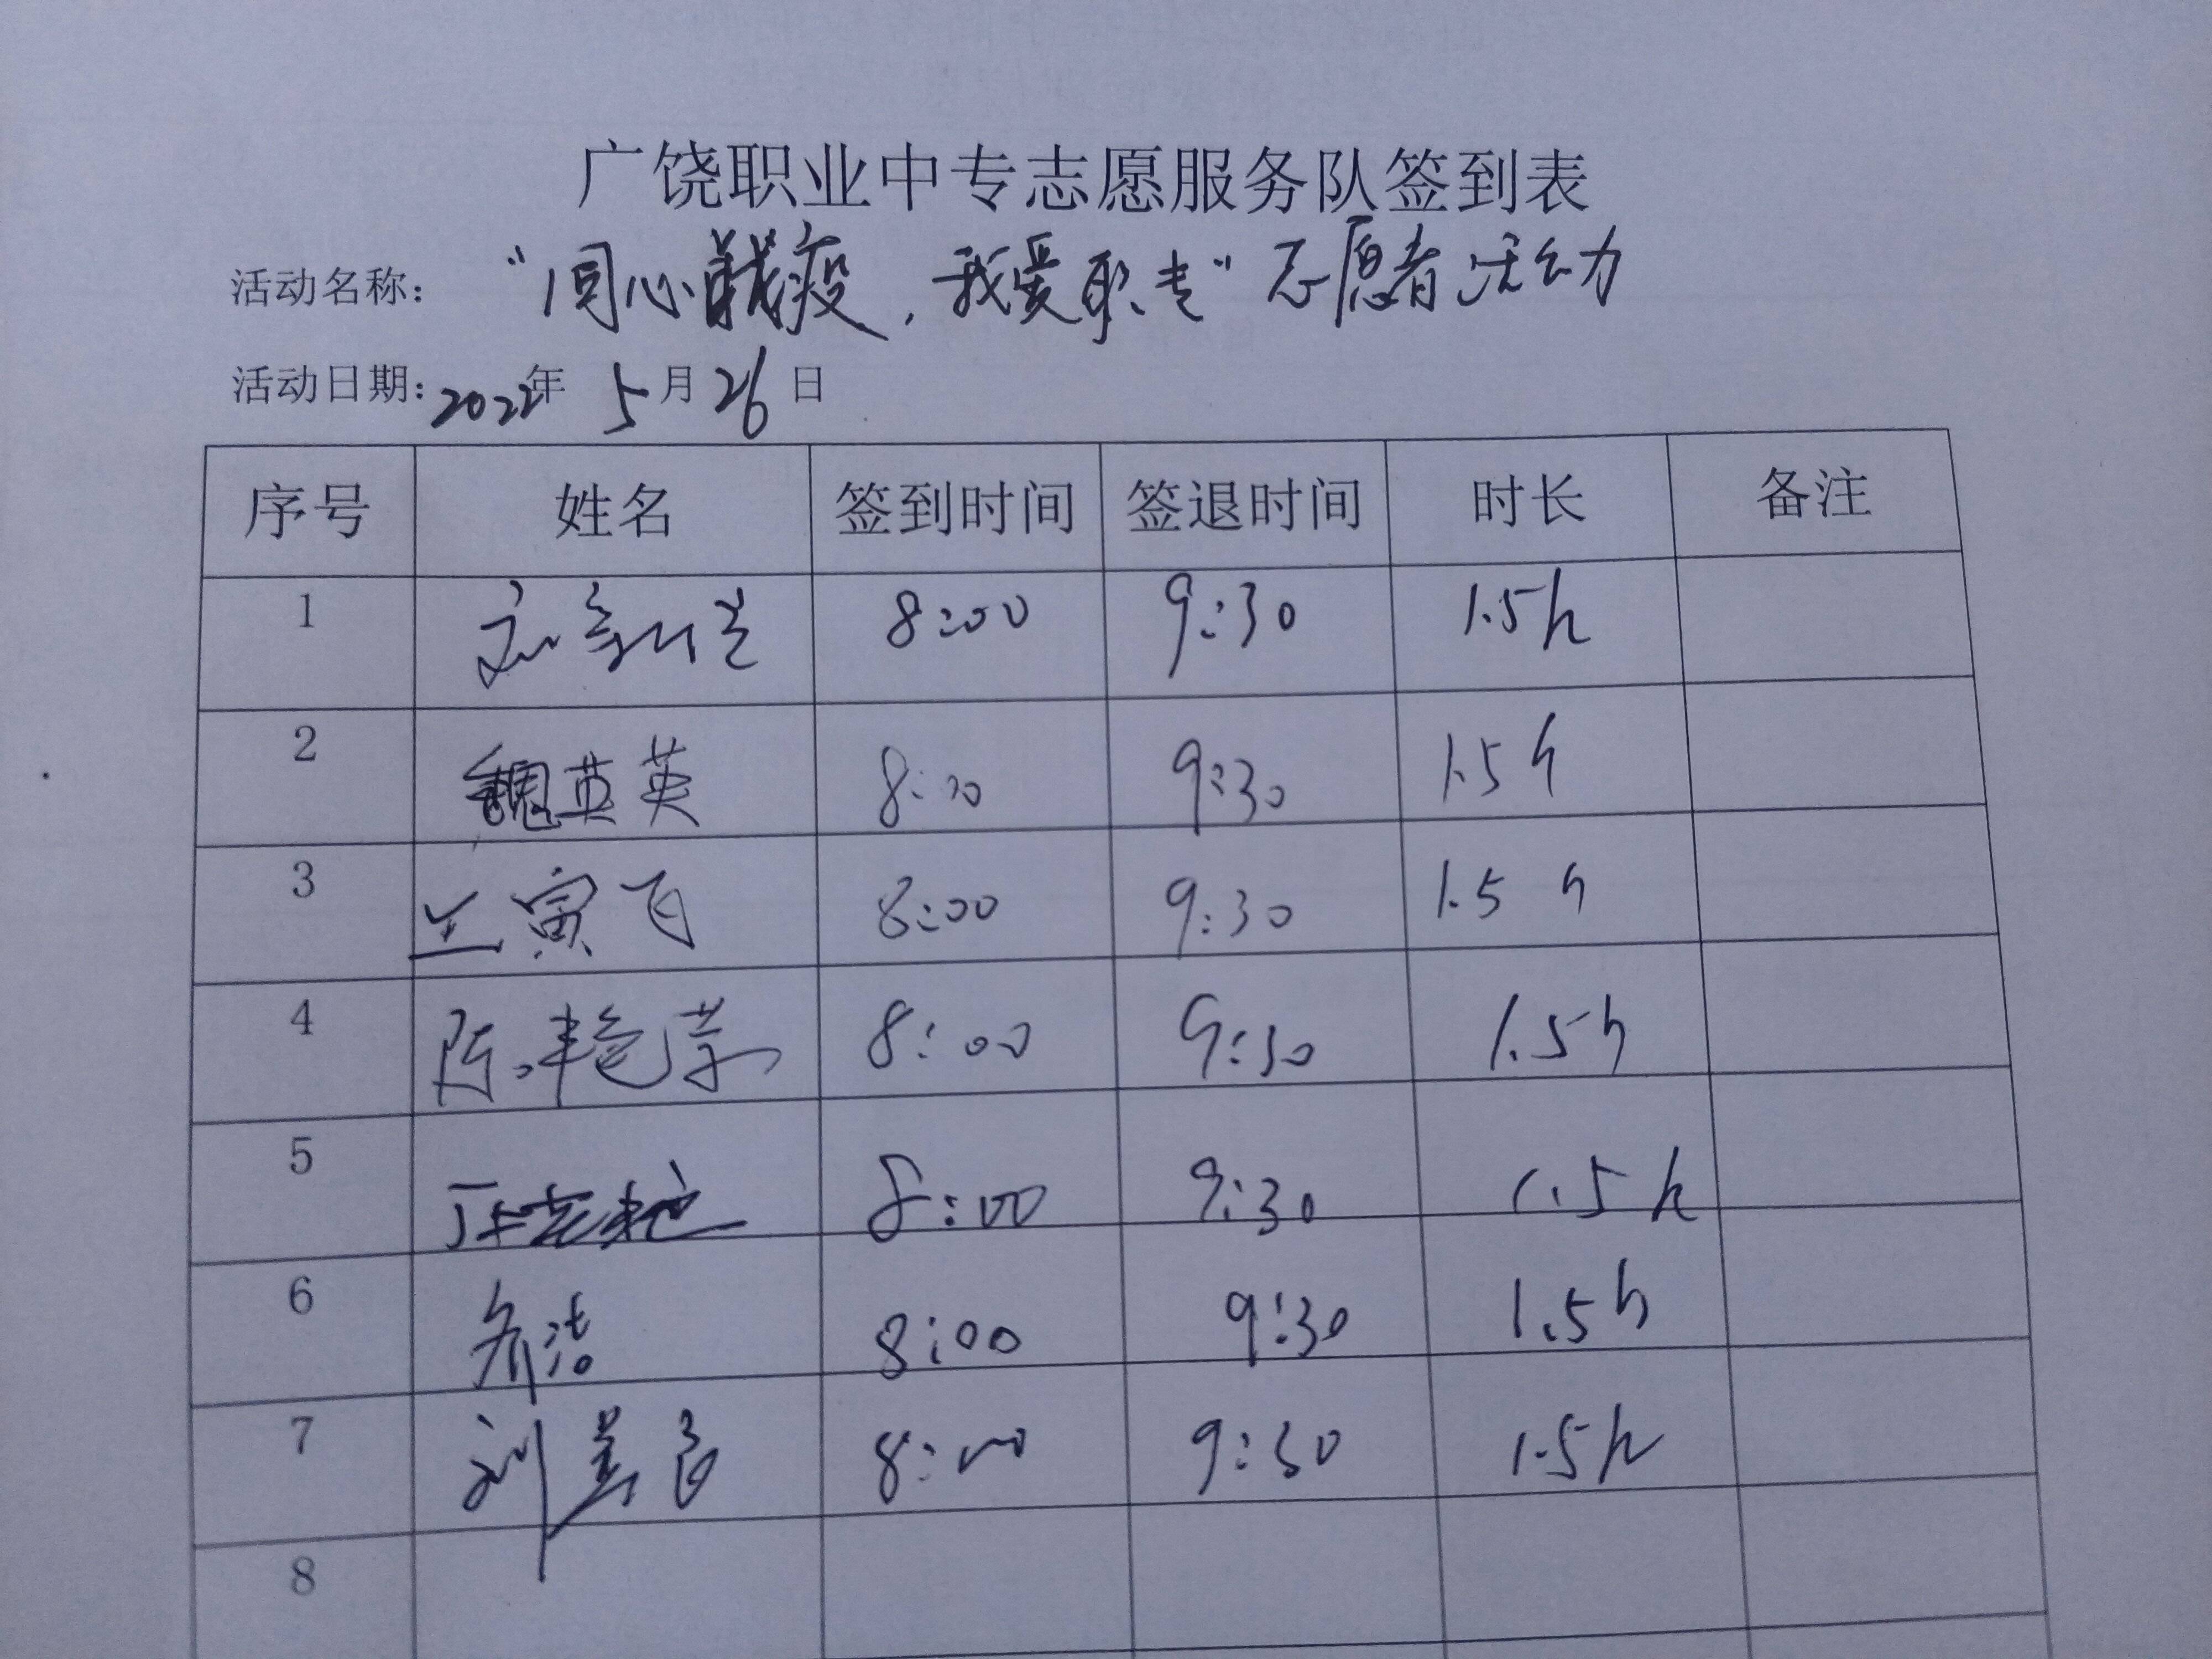 广饶职业中专志愿服务队签到表
活动名称： “同心战疫，我爱职专”志愿者活动
活动日期：2022年 5月26日
序号 姓名 签到时间 签退时间 时长 备注
1 8:00 9:30 1.5h
2 魏英英 8:00 9:30 1.5h
3 王寅飞 8:00 9:30 1.5h
4 陈艳芳 8:00 9:30 1.5h
5 8:00 9:30 1.5h
6 乔洁 8:00 9:30 1.5h
7 刘 8:00 9:30 1.5h
8